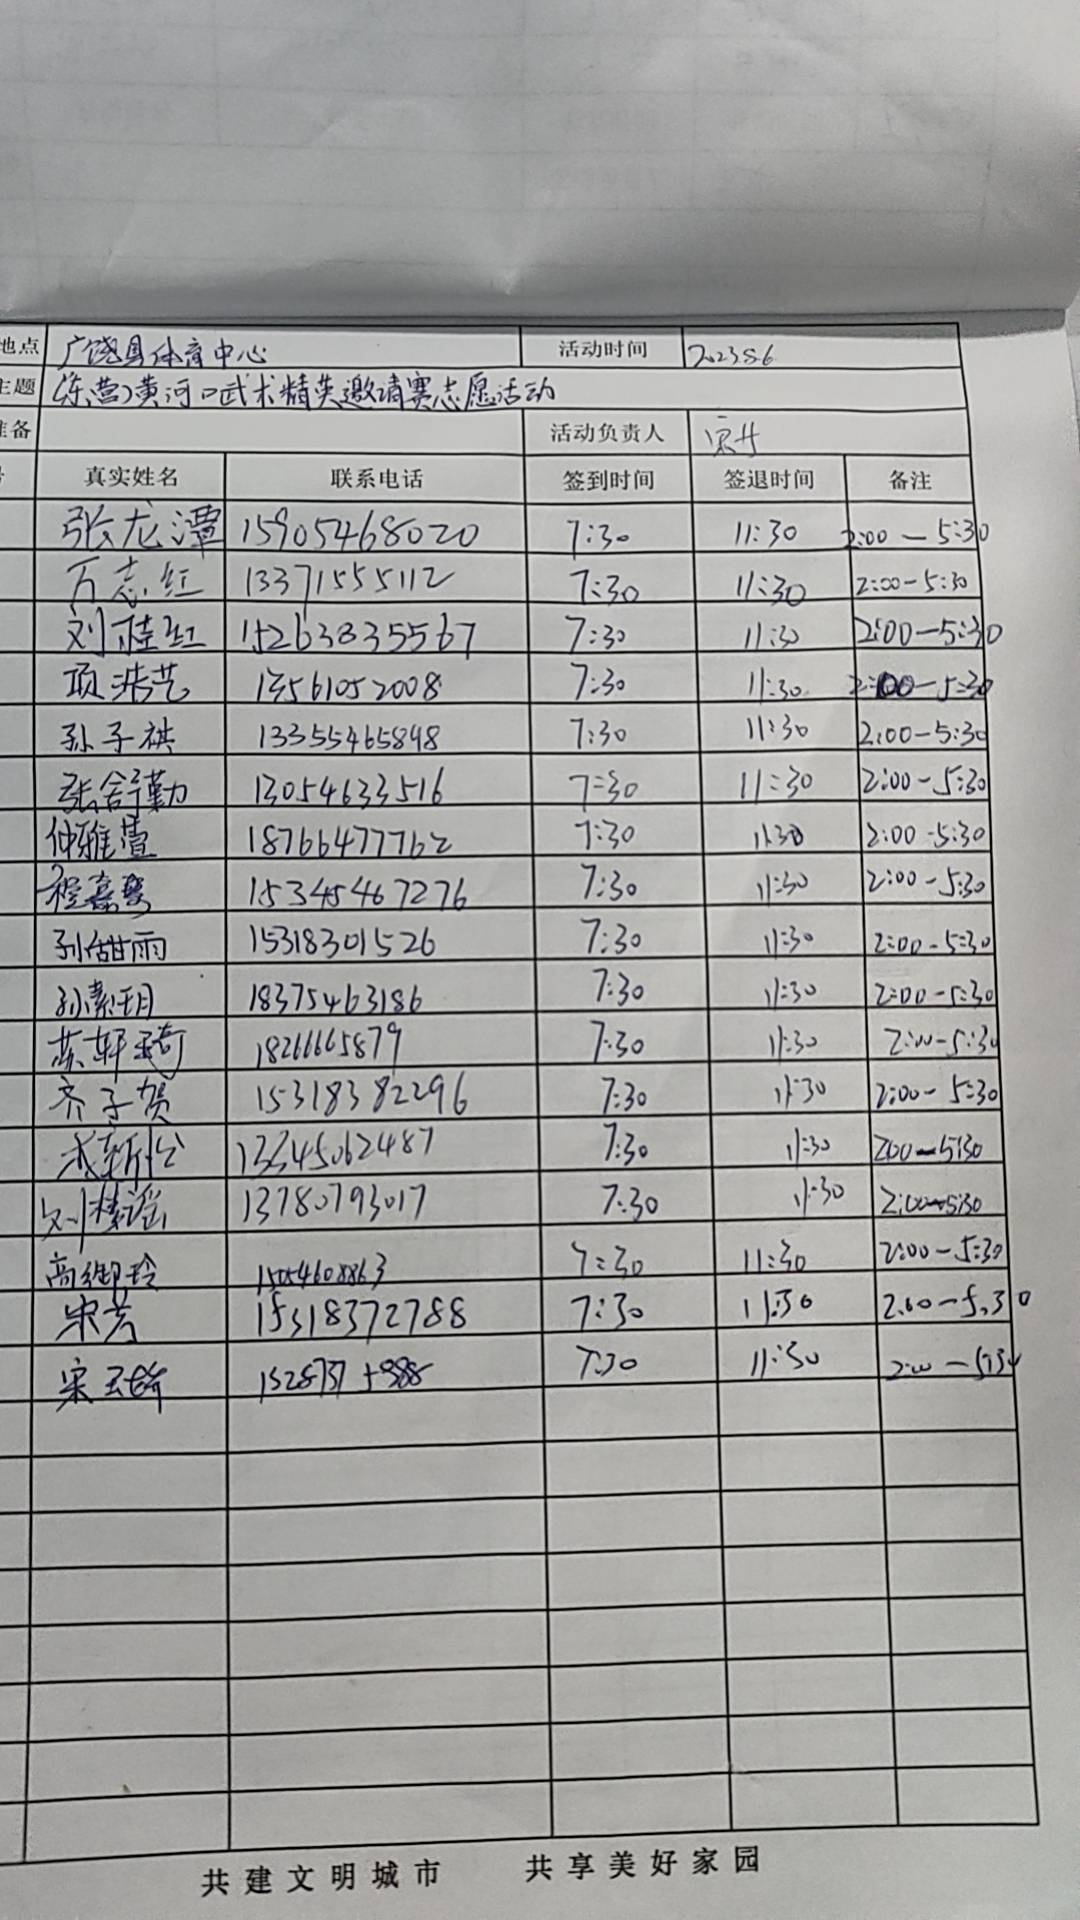 地点 广饶县体育中心 活动时间 2023.5.6
主题 (东营)黄河口武术精英邀请赛志愿活动
准备 活动负责人
真实姓名 联系电话 签到时间 签退时间 备注
张龙潭 15905468020 7:30 11:30 2:00—5:30
万志红 13371555112 7:30 11:30 2:00-5:30
刘桂红 15263835567 7:30 11:30 2:00-5:30
项浩艺 13561052008 7:30 11:30 2:00-5:30
孙子祺 13355465898 7:30 11:30 2:00-5:30
张舒勤 13054633516 7:30 11:30 2:00-5:30
仲雅萱 18766477762 7:30 11:30 2:00-5:30
程嘉 15345467276 7:30 11:30 2:00-5:30
孙甜雨 15318301526 7:30 11:30 2:00-5:30
孙素玥 18375463186 7:30 11:30 2:00-5:30
苏轩琦 18266665879 7:30 11:30 2:00-5:30
齐子贺 15318382296 7:30 11:30 2:00-5:30
成新 13345062487 7:30 11:30 2:00-5:30
刘 谣 13780793017 7:30 11:30 2:00-5:30
高卿玲 15054608863 7:30 11:30 2:00-5:30
宋芳 15318372788 7:30 11:30 2:00-5:30
宋玉 7:30 11:30 2:00-5:30
共建文明城市 共享美好家园